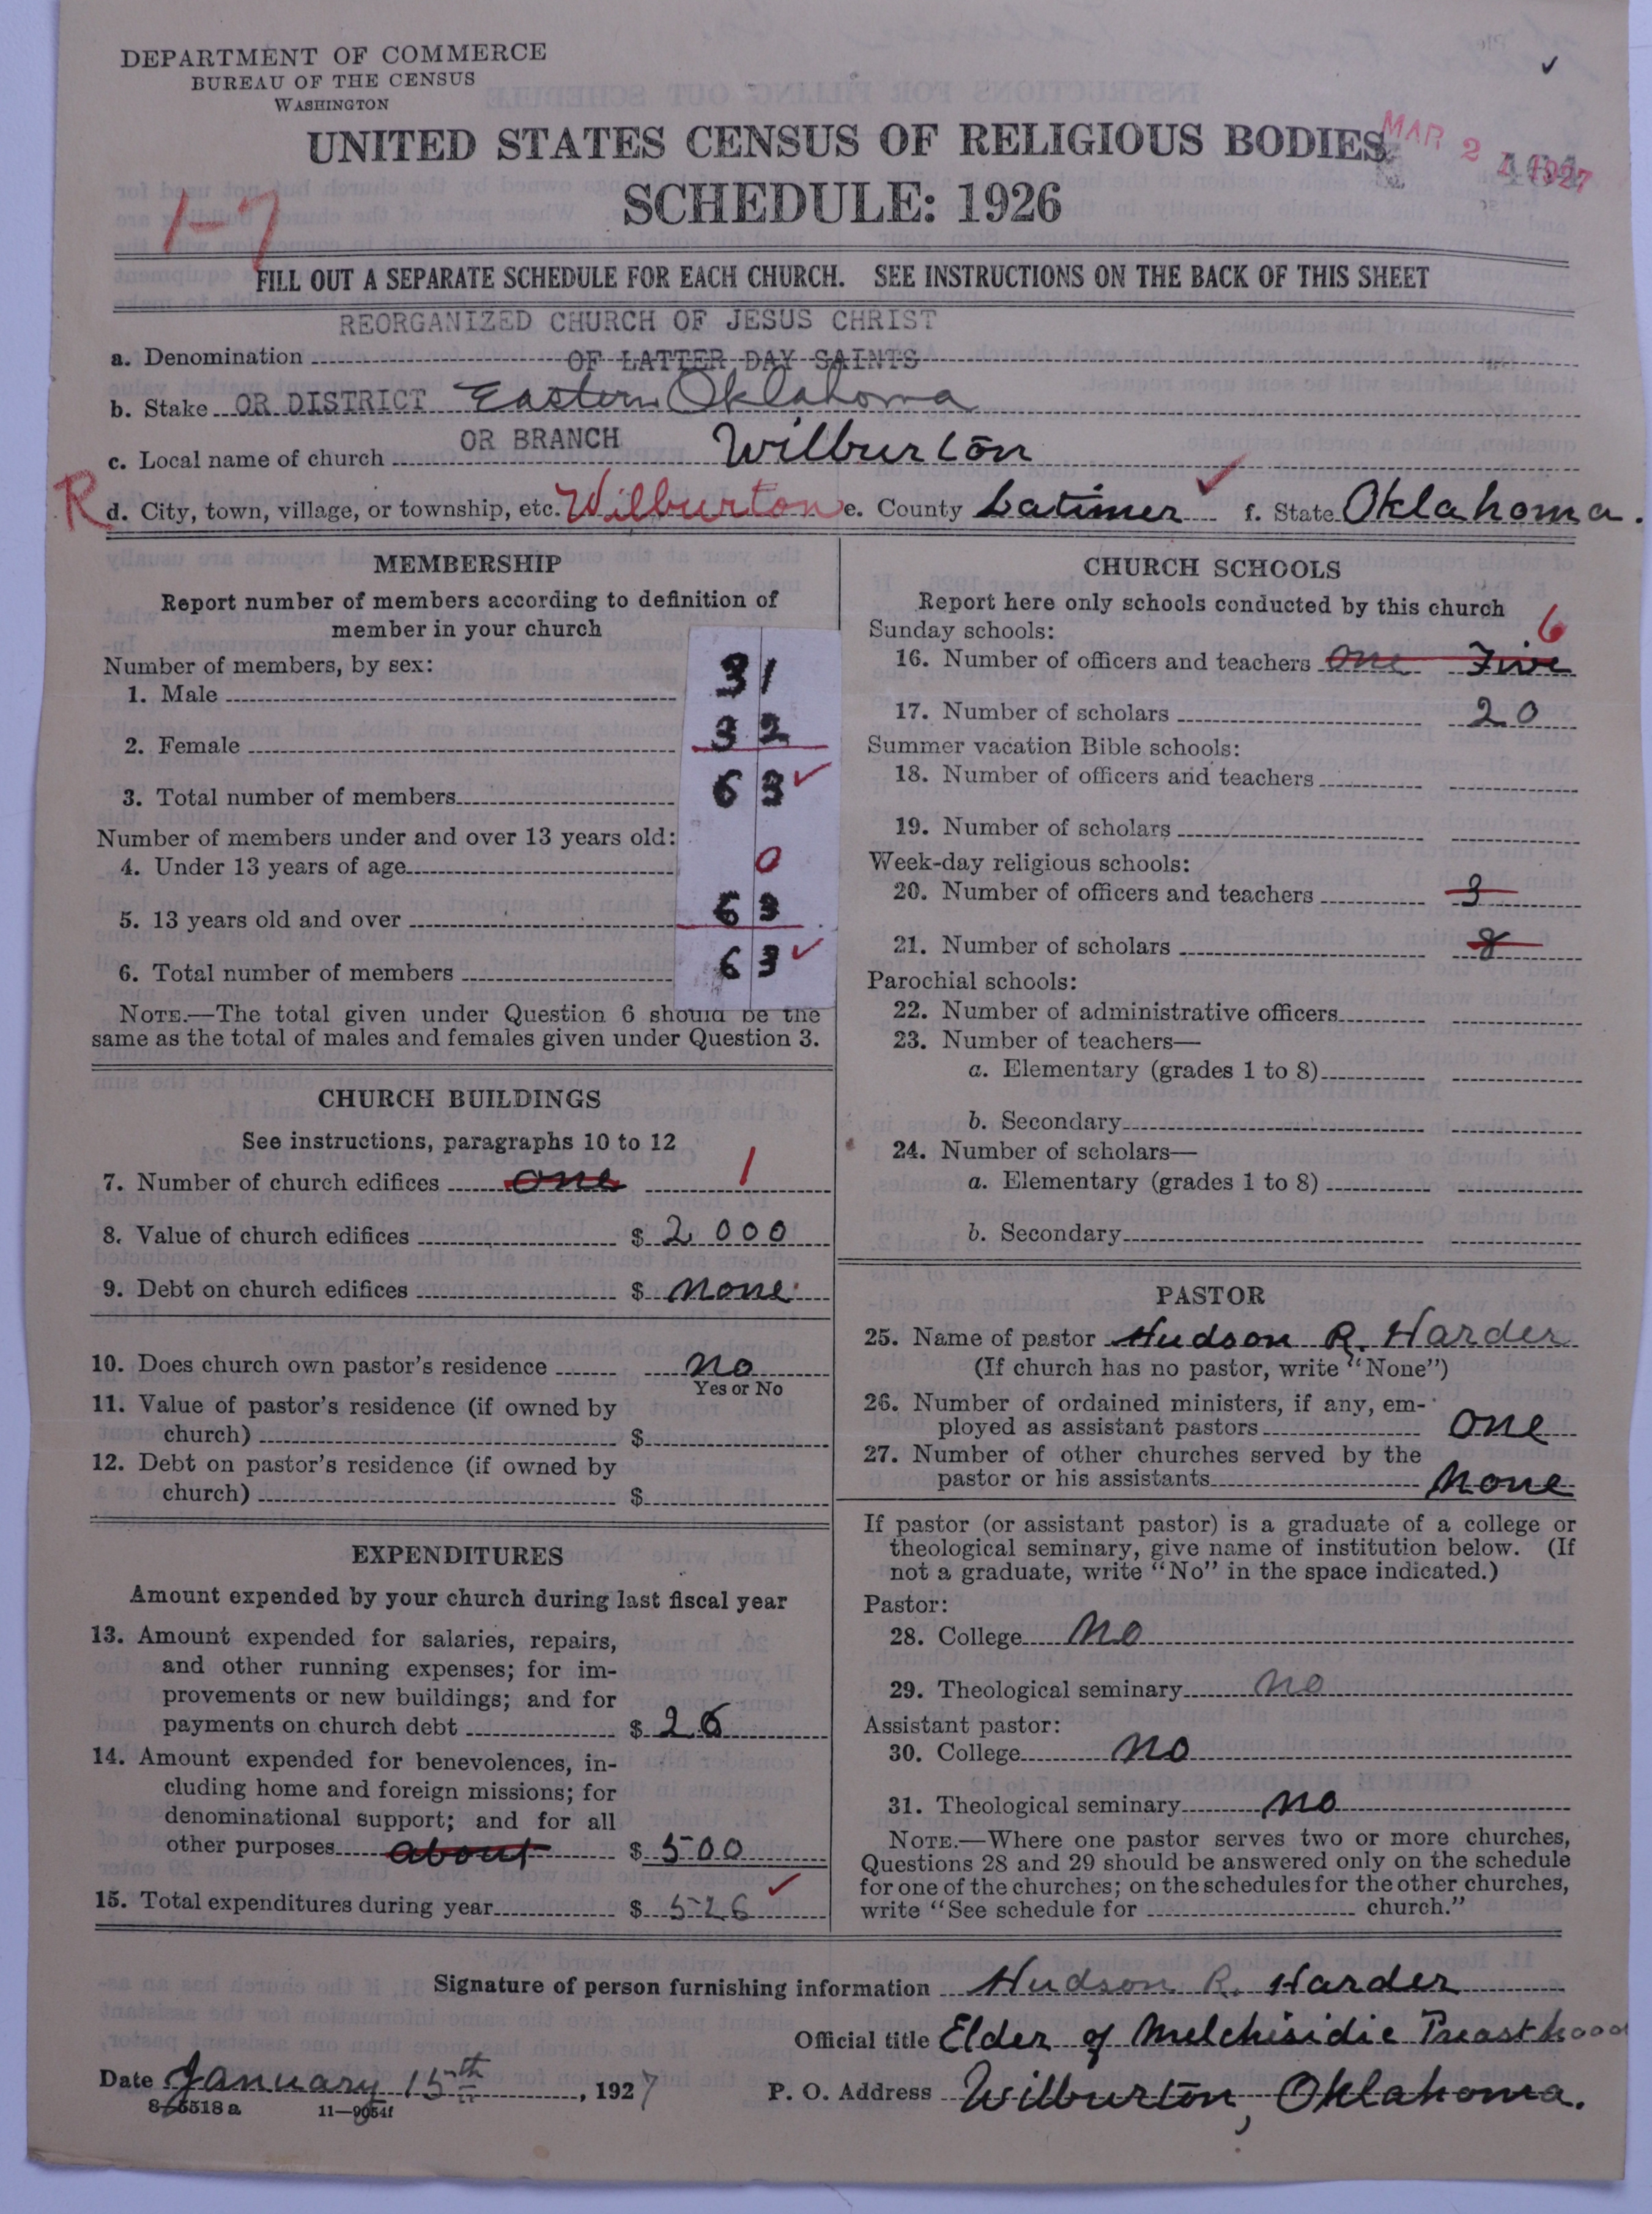 DEPARTMENT OF COMMERCE
BUREAU OF THE CENSUS
WASHINGTON
UNITED STATES CENSUS OF RELIGIOUS BODIES
MAR 2 1927
SCHEDULE: 1926
1-7
FILL OUT A SEPARATE SCHEDULE FOR EACH CHURCH. SEE INSTRUCTIONS ON THE BACK OF THIS SHEET
REORGANIZED CHURCH OF JESUS CHRIST
a. Denomination OF LATTER DAY SAINTS
b. Stake OR DISTRICT Eastern Oklahoma
c. Local name of church OR BRANCH Wilburton
R d. City, town, village, or township, etc. Wilburton e. County Latimer f. State Oklahoma.
MEMBERSHIP
Report number of members according to definition of
member in your church
Number of members, by sex:
1. Male 31
2. Female 32
3. Total number of members 63
Number of members under and over 13 years old:
4. Under 13 years of age 0
5. 13 years old and over 63
6. Total number of members 63
NOTE.—The total given under Question 6 should be the
same as the total of males and females given under Question 3.
CHURCH BUILDINGS
See instructions, paragraphs 10 to 12
7. Number of church edifices one 1
8. Value of church edifices $ 2000
9. Debt on church edifices $ none
10. Does church own pastor's residence no
Yes or No
11. Value of pastor's residence (if owned by
church) $
12. Debt on pastor's residence (if owned by
church) $
EXPENDITURES
Amount expended by your church during last fiscal year
13. Amount expended for salaries, repairs,
and other running expenses; for im-
provements or new buildings; and for
payments on church debt $ 26
14. Amount expended for benevolences, in-
cluding home and foreign missions; for
denominational support; and for all
other purposes about $ 500
15. Total expenditures during year $ 526
CHURCH SCHOOLS
Report here only schools conducted by this church
Sunday schools: 6
16. Number of officers and teachers One Five
17. Number of scholars 20
Summer vacation Bible schools:
18. Number of officers and teachers
19. Number of scholars
Week-day religious schools:
20. Number of officers and teachers 3
21. Number of scholars 8
Parochial schools:
22. Number of administrative officers
23. Number of teachers—
a. Elementary (grades 1 to 8)
b. Secondary
24. Number of scholars—
a. Elementary (grades 1 to 8)
b. Secondary
PASTOR
25. Name of pastor Hudson R. Harder
(If church has no pastor, write "None")
26. Number of ordained ministers, if any, em-
ployed as assistant pastors one
27. Number of other churches served by the
pastor or his assistants None
If pastor (or assistant pastor) is a graduate of a college or
theological seminary, give name of institution below. (If
not a graduate, write "No" in the space indicated.)
Pastor:
28. College No
29. Theological seminary no
Assistant pastor:
30. College no
31. Theological seminary no
NOTE.—Where one pastor serves two or more churches,
Questions 28 and 29 should be answered only on the schedule
for one of the churches; on the schedules for the other churches,
write "See schedule for church."
Signature of person furnishing information Hudson R. Harder
Official title Elder of Melchisidie Preasthood
Date January 15th, 1927 P. O. Address Wilburton, Oklahoma.
8-5518a 11—9054f